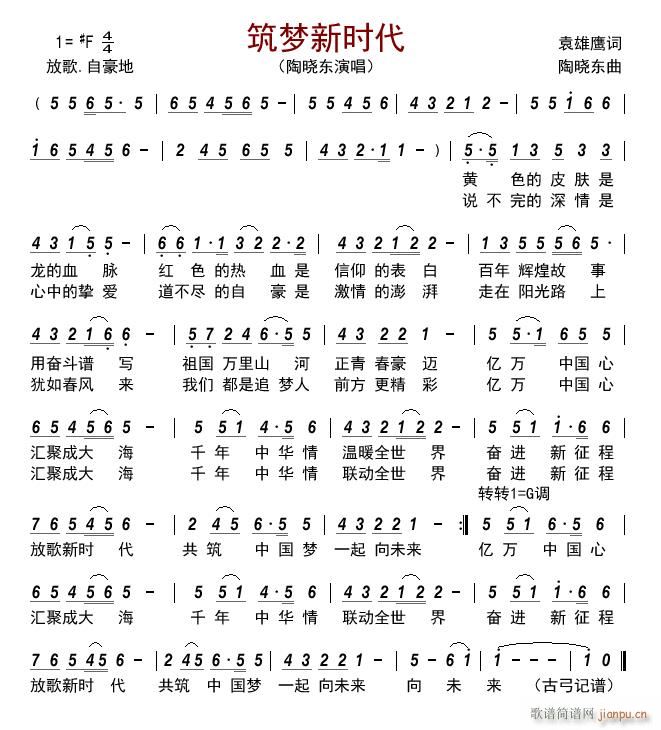 筑梦新时代
1= #F 4/4
袁雄鹰词
放歌.自豪地
（陶晓东演唱）
陶晓东曲
( 5 5 6 5 · 5 | 6 5 4 5 6 5 - | 4 3 2 1 2 - | 5 5 1 6 6
1 6 5 4 5 6 - | 2 4 5 6 5 5 | 4 3 2·1 1 - ) | 5·5 1 3 5 3 3
黄 色的皮肤是
说不完的深情是
4 3 1 5 5 - | 6 6 1·1 3 2 2·2 | 4 3 2 1 2 2 - | 1 3 5 5 5 5 6 5·
龙的血 脉 红 色的热 血是 信仰的表白 百年辉煌故 事
心中的挚 爱 道不尽的自 豪是 激情的澎湃 走在阳光路 上
4 3 2 1 6 6 - | 5 7 2 2 4 6·5 5 | 3 4 3 2 2 1 - | 5 5 5·1 6 5 5
用奋斗谱 写 祖国万里山 河 正青春豪迈 亿万 中国心
犹如春风 来 我们都是追 梦人 前方更精彩 亿万 中国心
6 5 4 5 6 5 - | 5 5 1 4·5 6 | 4 3 2 2 1 2 - | 5 5 1 1·6 6
汇聚成大 海 千年 中华情 温暖全世 界 奋进 新征程
汇聚成大 海 千年 中华情 联动全世 界 奋进 新征程
转转1=G调
7 6 5 4 5 6 - | 2 4 5 6·5 5 | 4 3 2 2 1 - :| 5 5 1 6 5 5
放歌新时 代 共筑 中国梦 一起向未来 亿万 中国心
6 5 4 5 6 5 - | 5 5 1 4·5 6 | 4 3 2 2 1 2 - | 5 5 1 1·6 6
汇聚成大 海 千年 中华情 联动全世 界 奋进 新征程
7 6 5 4 5 6 - | 2 4 5 6·5 5 | 4 3 2 2 1 - | 5 - 6 1 | 1 - - - | 1 0 ||
放歌新时 代 共筑 中国梦 一起向未来 向 未 来 （古弓记谱）
歌谱简谱网
jianpu.cn